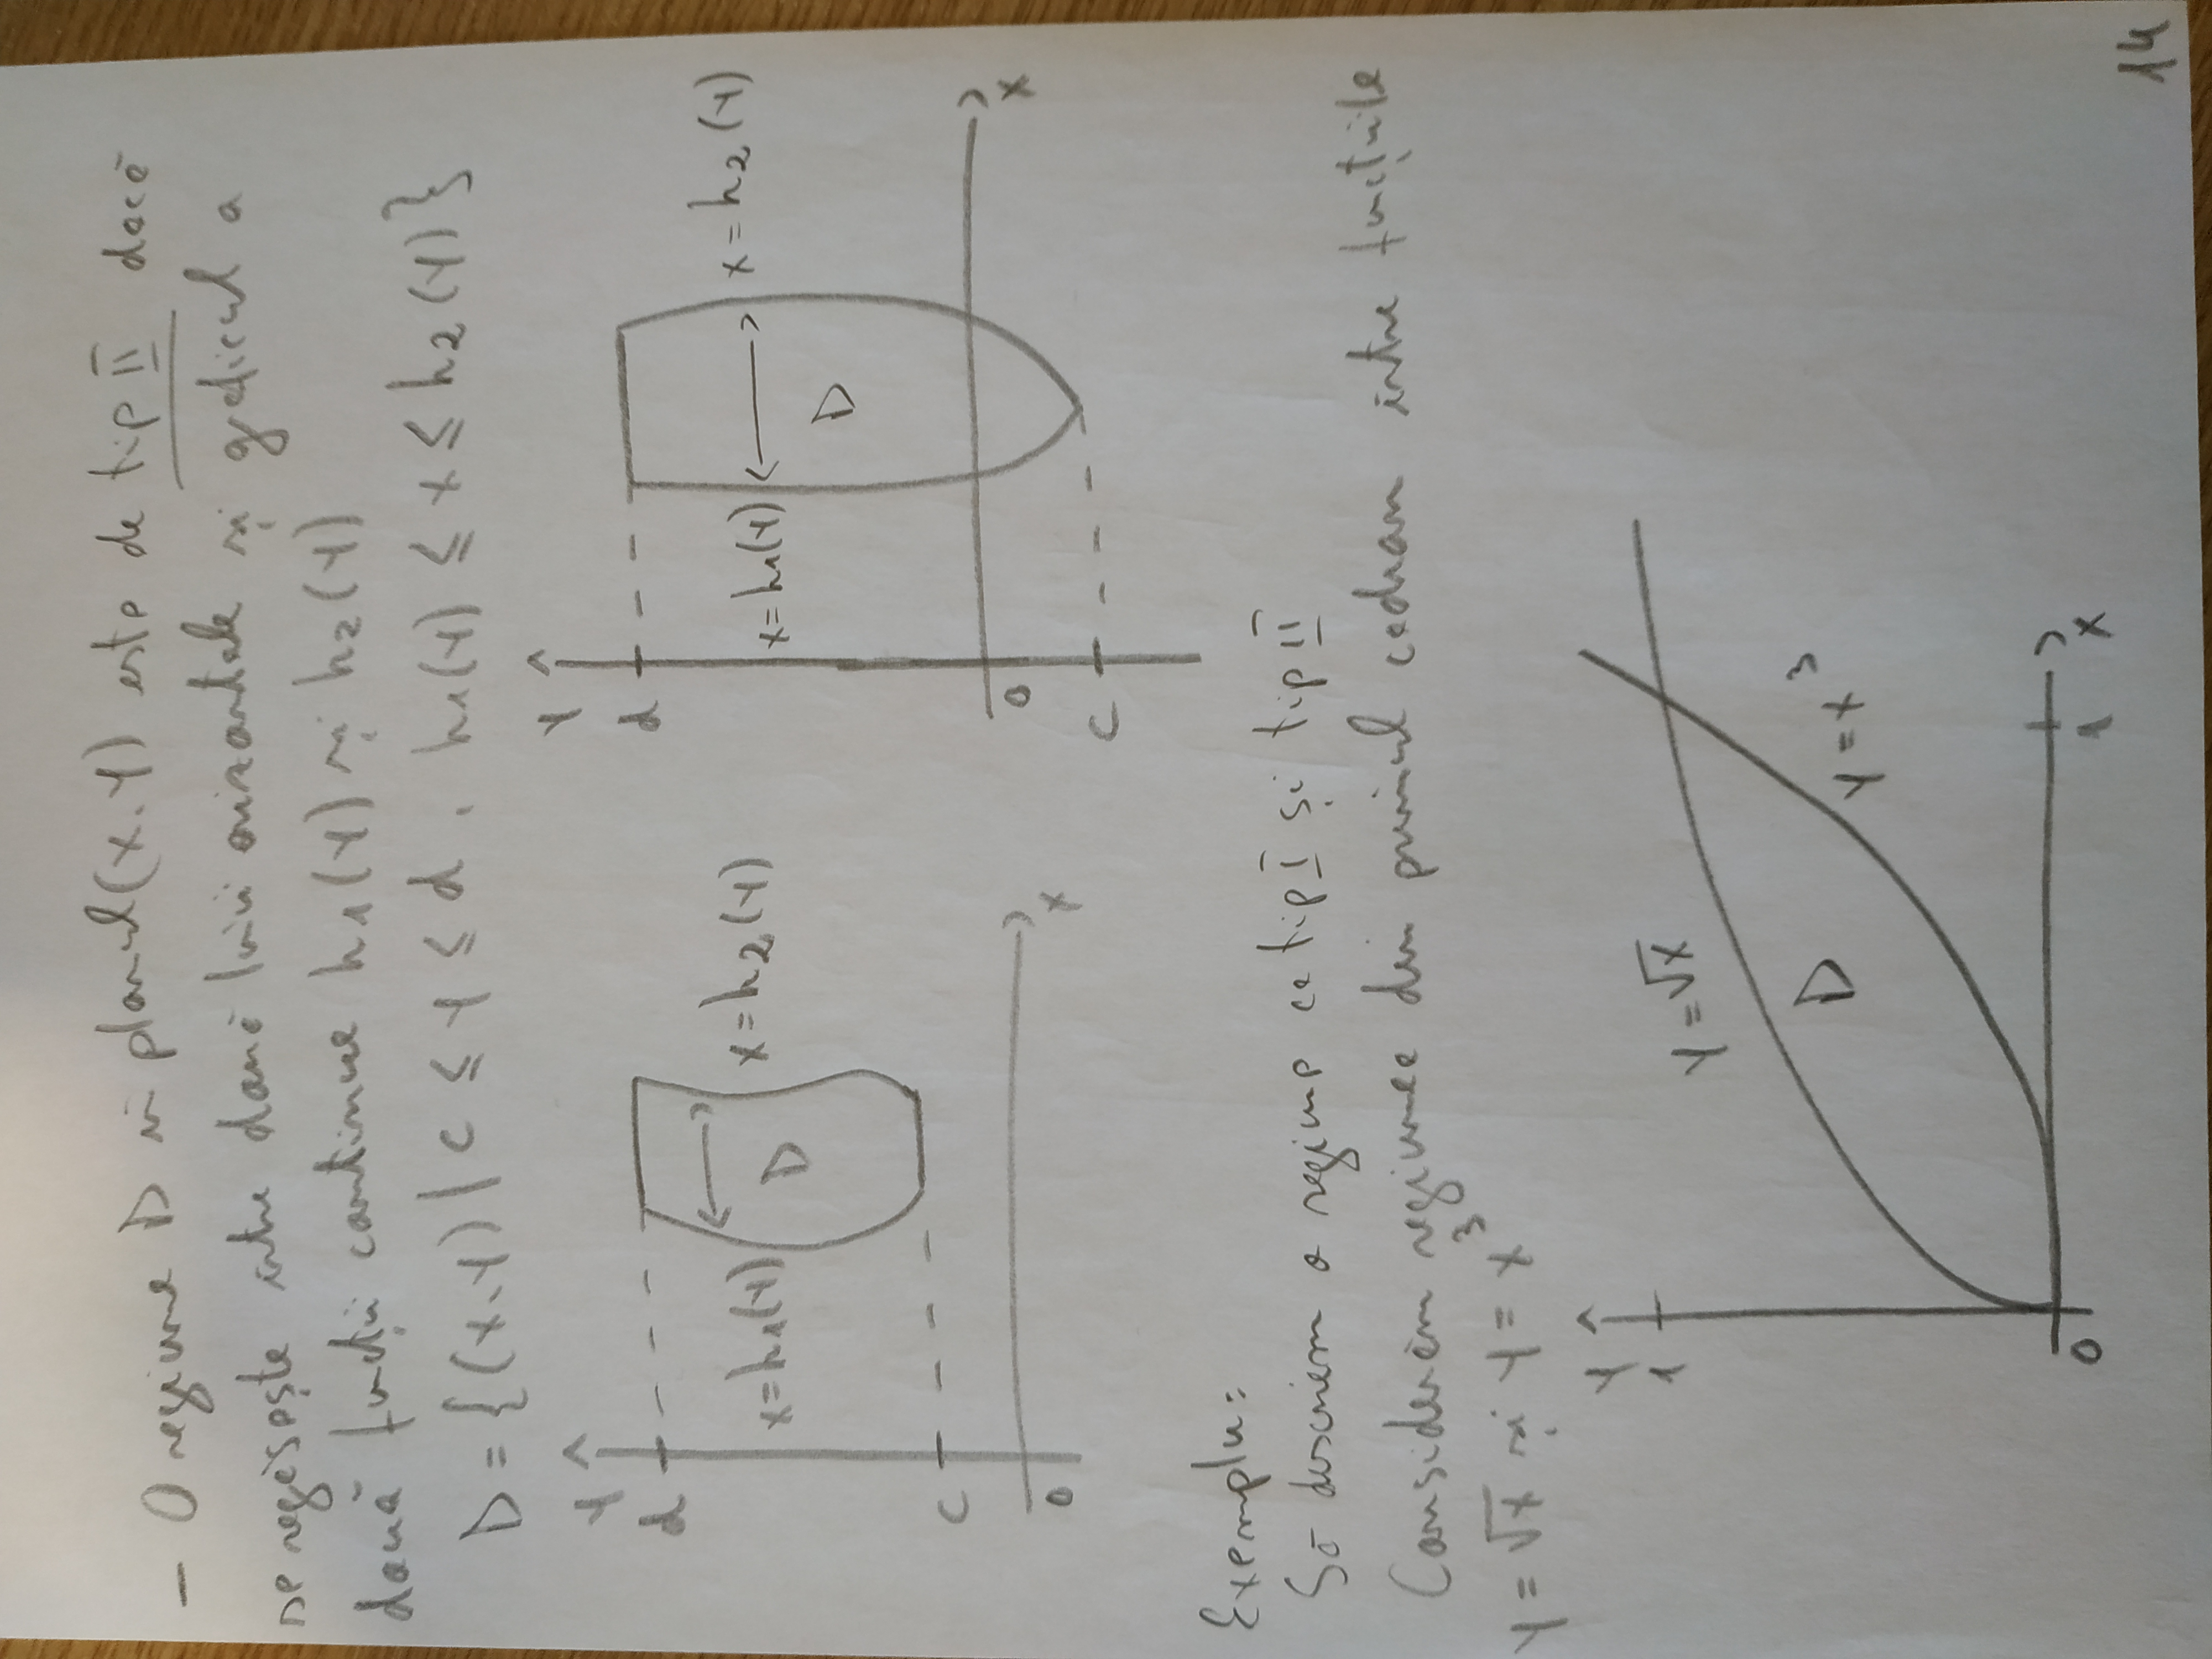 - O regiune D în planul (x.y) este de tip II dacă
se regăsește între două linii orizontale și graficul a
două funcții continue h1(y) și h2(y)
D = {(x.y) | c ≤ y ≤ d . h1(y) ≤ x ≤ h2(y)}
y
d
x=h1(y)
D
x=h2(y)
c
0
x
y
d
x=h1(y)
x=h2(y)
D
0
x
c
Exemplu:
Să descriem o regiune ca tip I și tip II
Considerăm regiunea din primul cadran între funcțiile
y = √x și y = x³
y
1
y = √x
D
y = x³
0
1
x
14